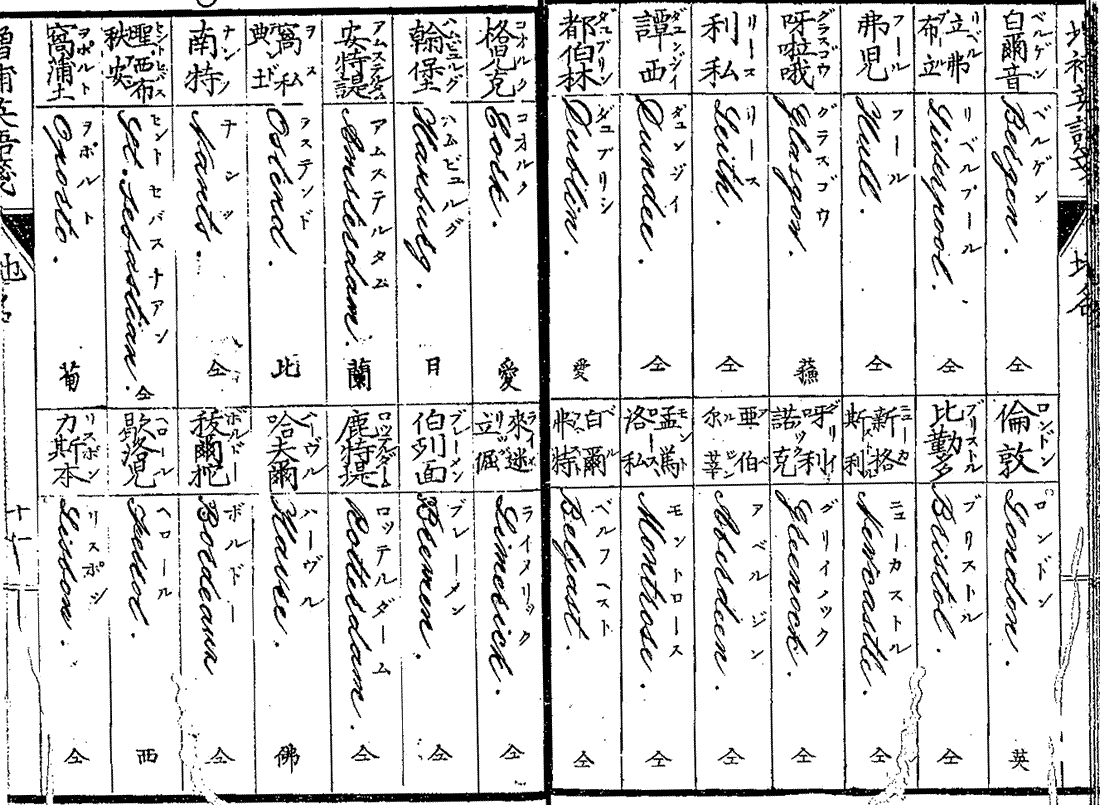 増補英語箋
地名
白爾音 ベルゲン
Bergen. ベルゲン 仝
倫敦 ロンドン
London. ロンドン 英
立弗布立 リベルプール
Liverpool. リベルプール 仝
比勤多 ブリストル
Bristol. ブリストル 仝
弗児 フール
Hull. フール 仝
新格斯利
Newcastle. ニューカストル 仝
呀啦哦 グラスゴウ
Glasgon. グラスゴウ 蘓
呀利諾克
Greenock. グリイノック 仝
利私 リース
Leith. リース 仝
亜伯尓莘
Aberdeen. アベルジン 仝
譚西 ダュンジイ
Dundee. ダュンジイ 仝
孟篤洛私 モントロース
Montrose. モントロース 仝
都伯林 ダュブリン
Dublin. ダュブリン 愛
白爾弗特
Belfast. ベルフハスト 仝
格児克 コオルク
Cork. コオルク 愛
來迷立倔 ライメリック
Limerick. ライメリック 仝
翰堡 ハムビュルグ
Hamburg. ハムビュルグ 日
伯列面 ブレーメン
Bremen. ブレーメン 仝
安特諟 アムステルダム
Amsterdam. アムステルダム 蘭
鹿特提 ロッテルダーム
Rotterdam. ロッテルダーム 仝
窩私典土
Ostend. ヲステンド 比
哈夫爾 ハーヴル
Havre. ハーヴル 佛
南特 ナンツ
Nants. ナンツ 仝
Bordeaux ボルドー 仝
聖西布秧安
St. Sebastian. セントセバスチアン 仝
歇洛児 ヘロール
Ferrol. ヘロール 西
窩浦土 ヲポルト
Oporto. ヲポルト 葡
力斯本 リスボン
Lisbon. リスボン 仝
増補英語箋
地名
十一